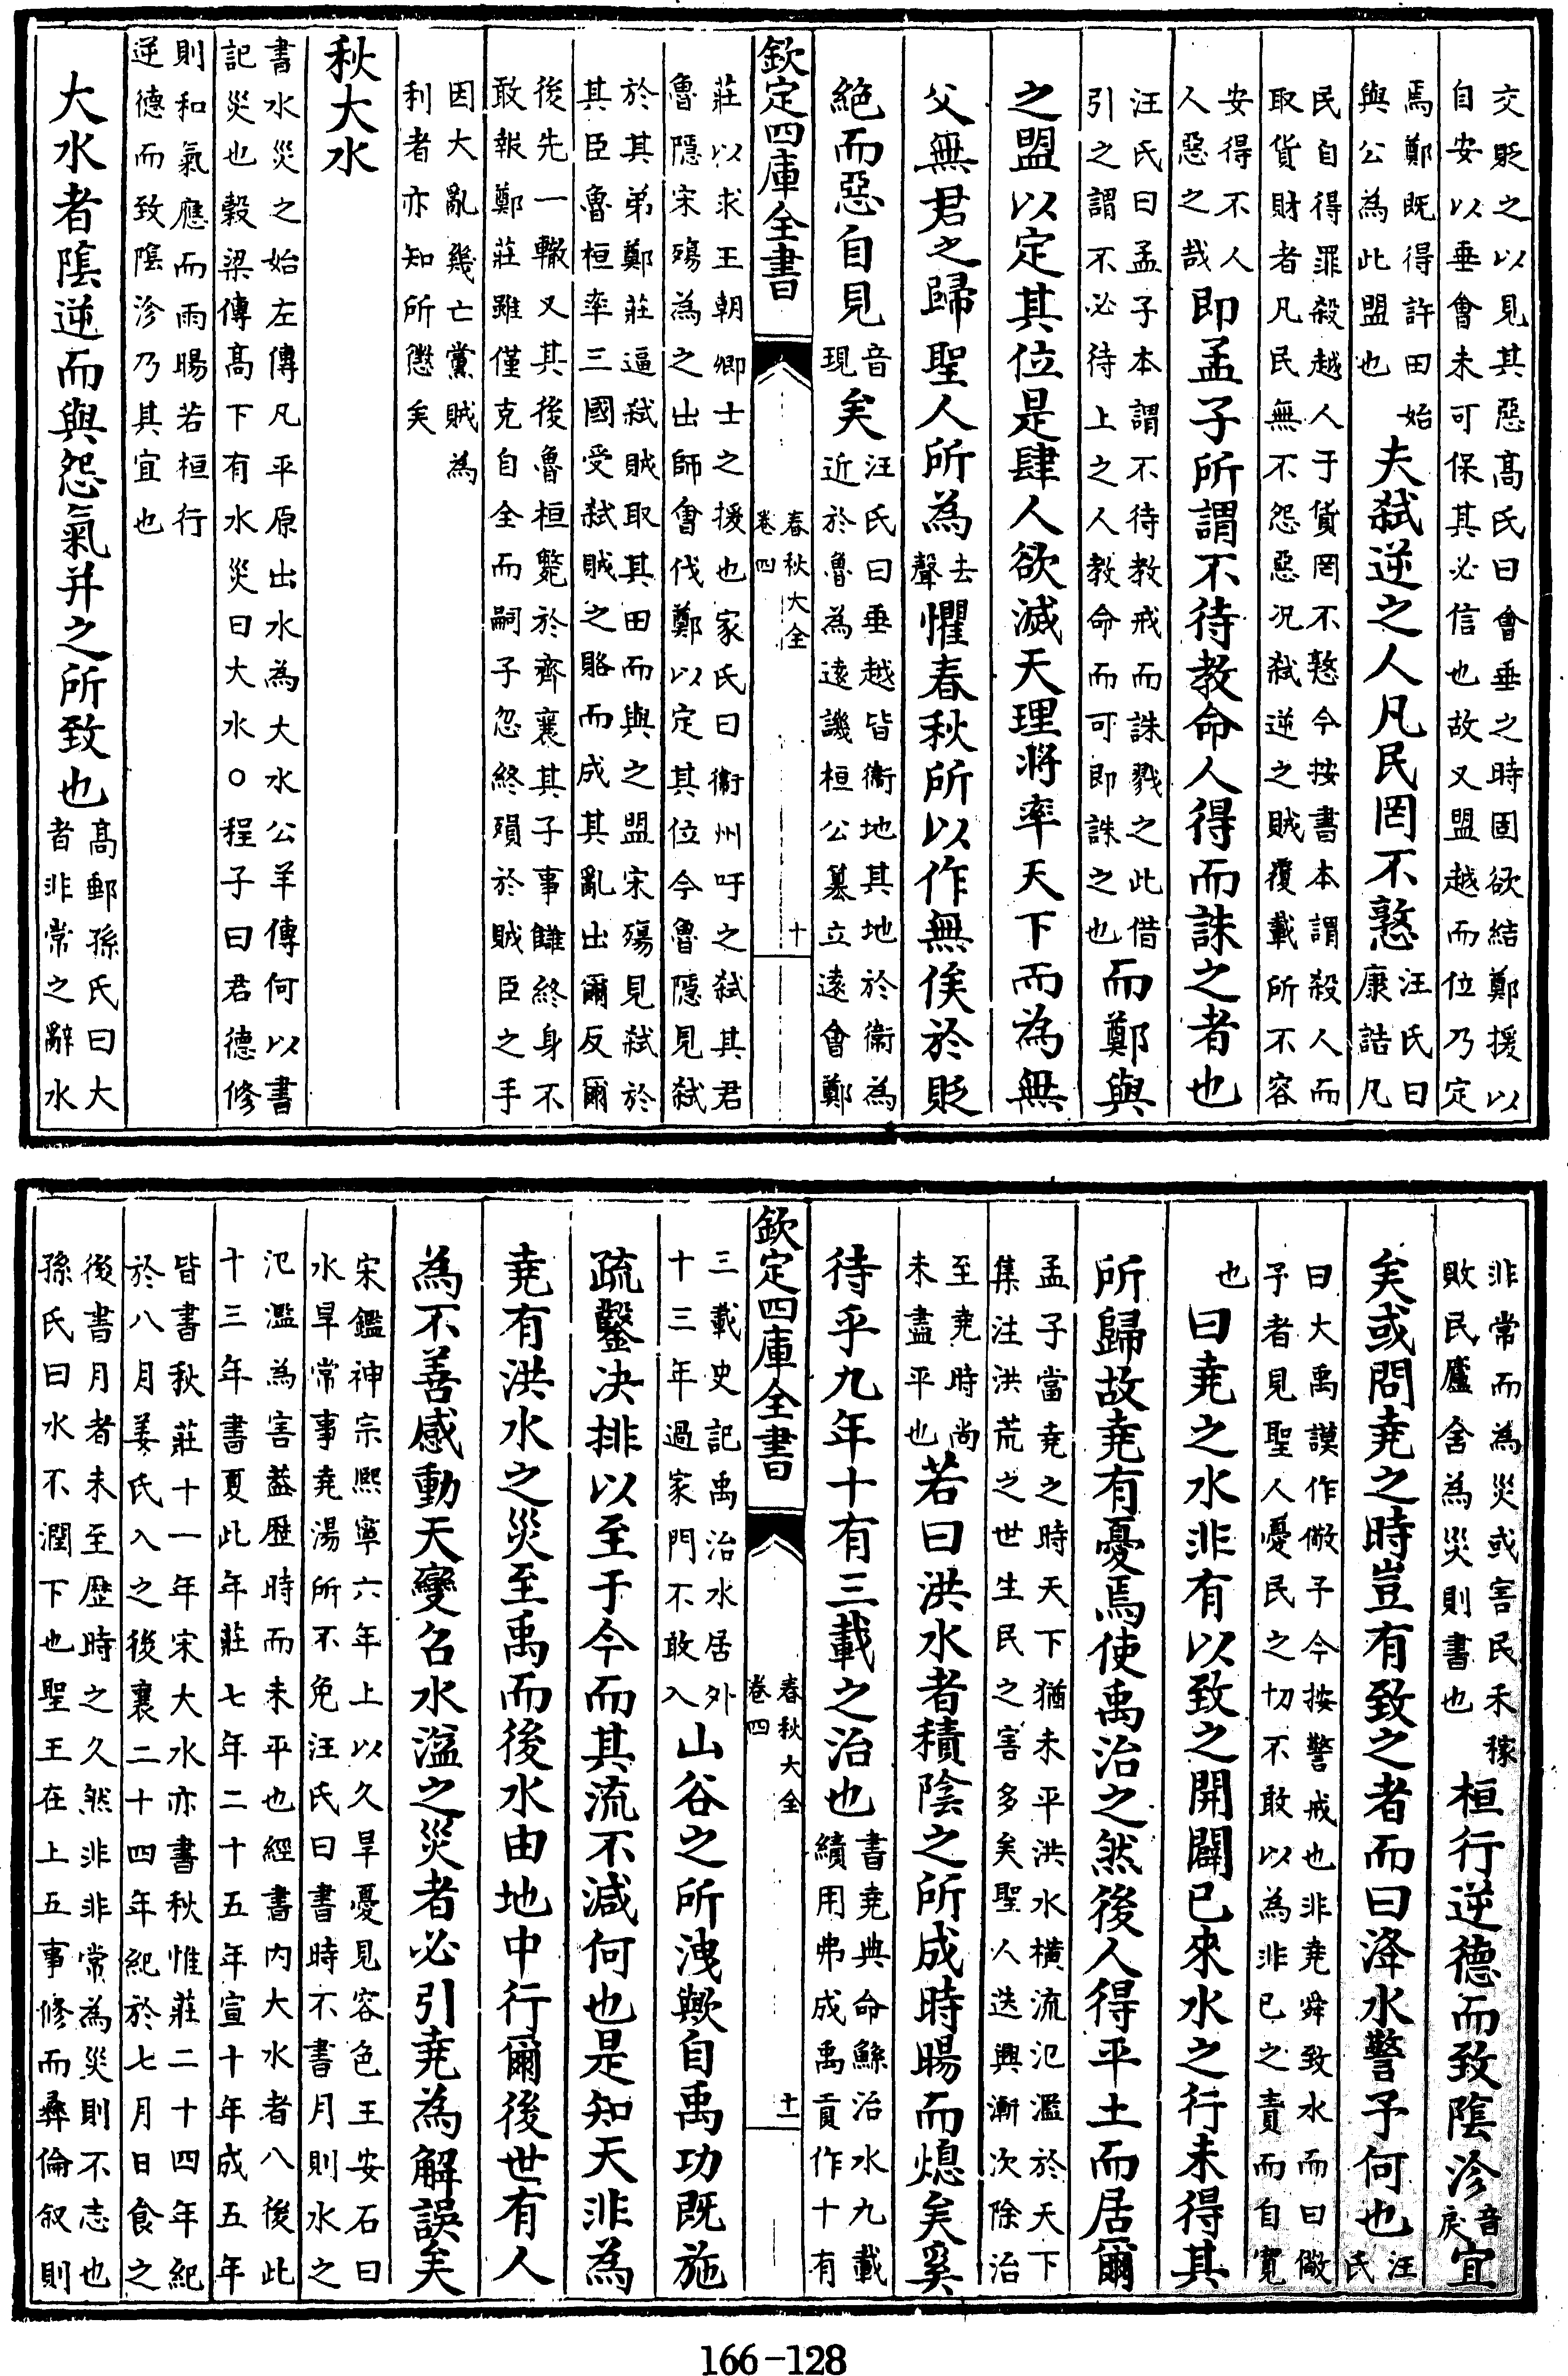 交貶之以見其惡髙氏曰會垂之時固欲結鄭援以
自安以垂會未可保其必信也故又盟越而位乃定
焉鄭既得許田始
與公為此盟也
夫弑逆之人凡民罔不憝
汪氏曰
康誥凡
民自得罪殺越人于貨罔不憝今按書本謂殺人而
取貨財者凡民無不怨惡况弑逆之賊覆載所不容
安得不人
人惡之哉
即孟子所謂不待教命人得而誅之者也
汪氏曰孟子本謂不待教戒而誅戮之此借
引之謂不必待上之人教命而可即誅之也
而鄭與
之盟以定其位是肆人欲滅天理將率天下而為無
父無君之歸聖人所為
去
聲
懼春秋所以作無俟於貶
絶而惡自見
音
現
矣
汪氏曰垂越皆衛地其地於衛為
近於魯為逺譏桓公簒立逺會鄭
欽定四庫全書
春秋大全
卷四
十
莊以求王朝卿士之援也家氏曰衛州吁之弑其君
魯隱宋殤為之出師會伐鄭以定其位今魯隱見弑
於其弟鄭莊逼弑賊取其田而與之盟宋殤見弑於
其臣魯桓率三國受弑賊之賂而成其亂出爾反爾
後先一轍又其後魯桓斃於齊襄其子事讎終身不
敢報鄭莊雖僅克自全而嗣子忽終殞於賊臣之手
因大亂幾亡黨賊為
利者亦知所懲矣
秋大水
書水災之始左傳凡平原出水為大水公羊傳何以書
記災也穀梁傳髙下有水災曰大水○程子曰君德修
則和氣應而雨暘若桓行
逆德而致隂沴乃其宜也
大水者隂逆而與怨氣并之所致也
髙郵孫氏曰大
者非常之辭水
非常而為災或害民禾稼
敗民廬舍為災則書也
桓行逆德而致隂沴
音
戾
宜
矣或問堯之時豈有致之者而曰洚水警予何也
汪
氏
曰大禹謨作儆予今按警戒也非堯舜致水而曰儆
予者見聖人憂民之切不敢以為非已之責而自寛
也
曰堯之水非有以致之開闢已來水之行未得其
所歸故堯有憂焉使禹治之然後人得平土而居爾
孟子當堯之時天下猶未平洪水橫流氾濫於天下
集注洪荒之世生民之害多矣聖人迭興漸次除治
至堯時尚
未盡平也
若曰洪水者積陰之所成時暘而熄矣奚
待乎九年十有三載之治也
書堯典命鯀治水九載
績用弗成禹貢作十有
欽定四庫全書
春秋大全
卷四
十一
三載史記禹治水居外
十三年過家門不敢入
山谷之所洩歟自禹功既施
疏鑿决排以至于今而其流不減何也是知天非為
堯有洪水之災至禹而後水由地中行爾後世有人
為不善感動天變召水溢之災者必引堯為解誤矣
宋鑑神宗熙寧六年上以久旱憂見容色王安石曰
水旱常事堯湯所不免汪氏曰書時不書月則水之
氾濫為害葢歴時而未平也經書内大水者八後此
十三年書夏此年莊七年二十五年宣十年成五年
皆書秋莊十一年宋大水亦書秋惟莊二十四年紀
於八月姜氏入之後襄二十四年紀於七月日食之
後書月者未至歴時之久然非非常為災則不志也
孫氏曰水不潤下也聖王在上五事修而彞倫叙則
166-128